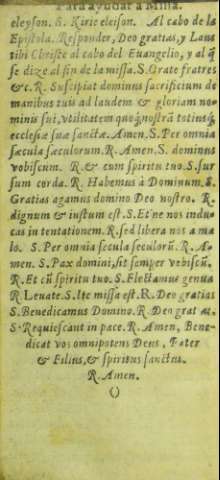 Para ayudar a Missa.
eleyson. S. Kirie eleison. Al cabo de la
Epistola. Responder, Deo gratias, y Laus
tibi Christe al cabo del Euangelio, y al q̃
se dize al fin de la missa. S. Orate fratres
&c. R. Suscipiat dominus sacrificium de
manibus tuis ad laudem & gloriam no-
minis sui, vtilitatem quoq́; nostrã totiusq́;
ecclesiæ suæ sanctæ. Amen. S. Per omnia
sæcula sæculorum. R. Amen. S. dominus
vobiscum. R. & cum spiritu tuo. S. sur
sum corda. R. Habemus à Dominum. S.
Gratias agamus domino Deo nostro. R.
dignum & iustum est. S. Et ne nos indu-
cas in tentationem. R. sed libera nos a ma
lo. S. Per omnia secula seculorũ. R. A-
men. S. Pax domini, sit semper vobiscũ.
R. Et cũ spiritu tuo. S. Flectamus genua
R. Leuate. S. Ite missa est. R. Deo gratias
S. Benedicamus Domino. R. Deo grat
S. Requiescant in pace. R. Amen, Bene-
dicat vos omnipotens Deus, Pater
& Filius, & spiritus sanctus.
R. Amen.
()